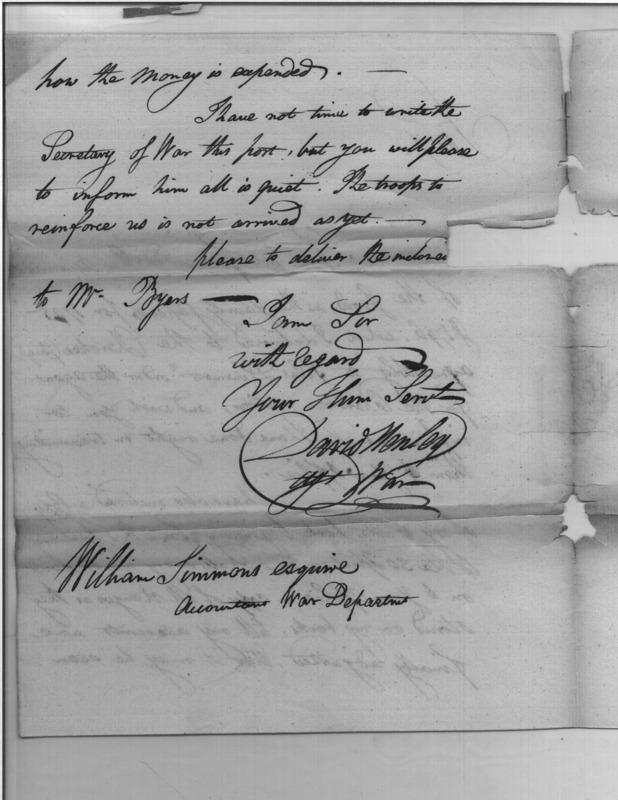 how the Money is expended. —
I have not time to write the
Secretary of War this post, but you will please
to inform him all is quiet. The troops to
reinforce us is not arrived as yet. —
please to deliver the inclosed
to Mr. Byers —
I am Sir
with regard
Your Hum Servt
David Henley
Agt War
William Simmons esquire
Accountant War Department